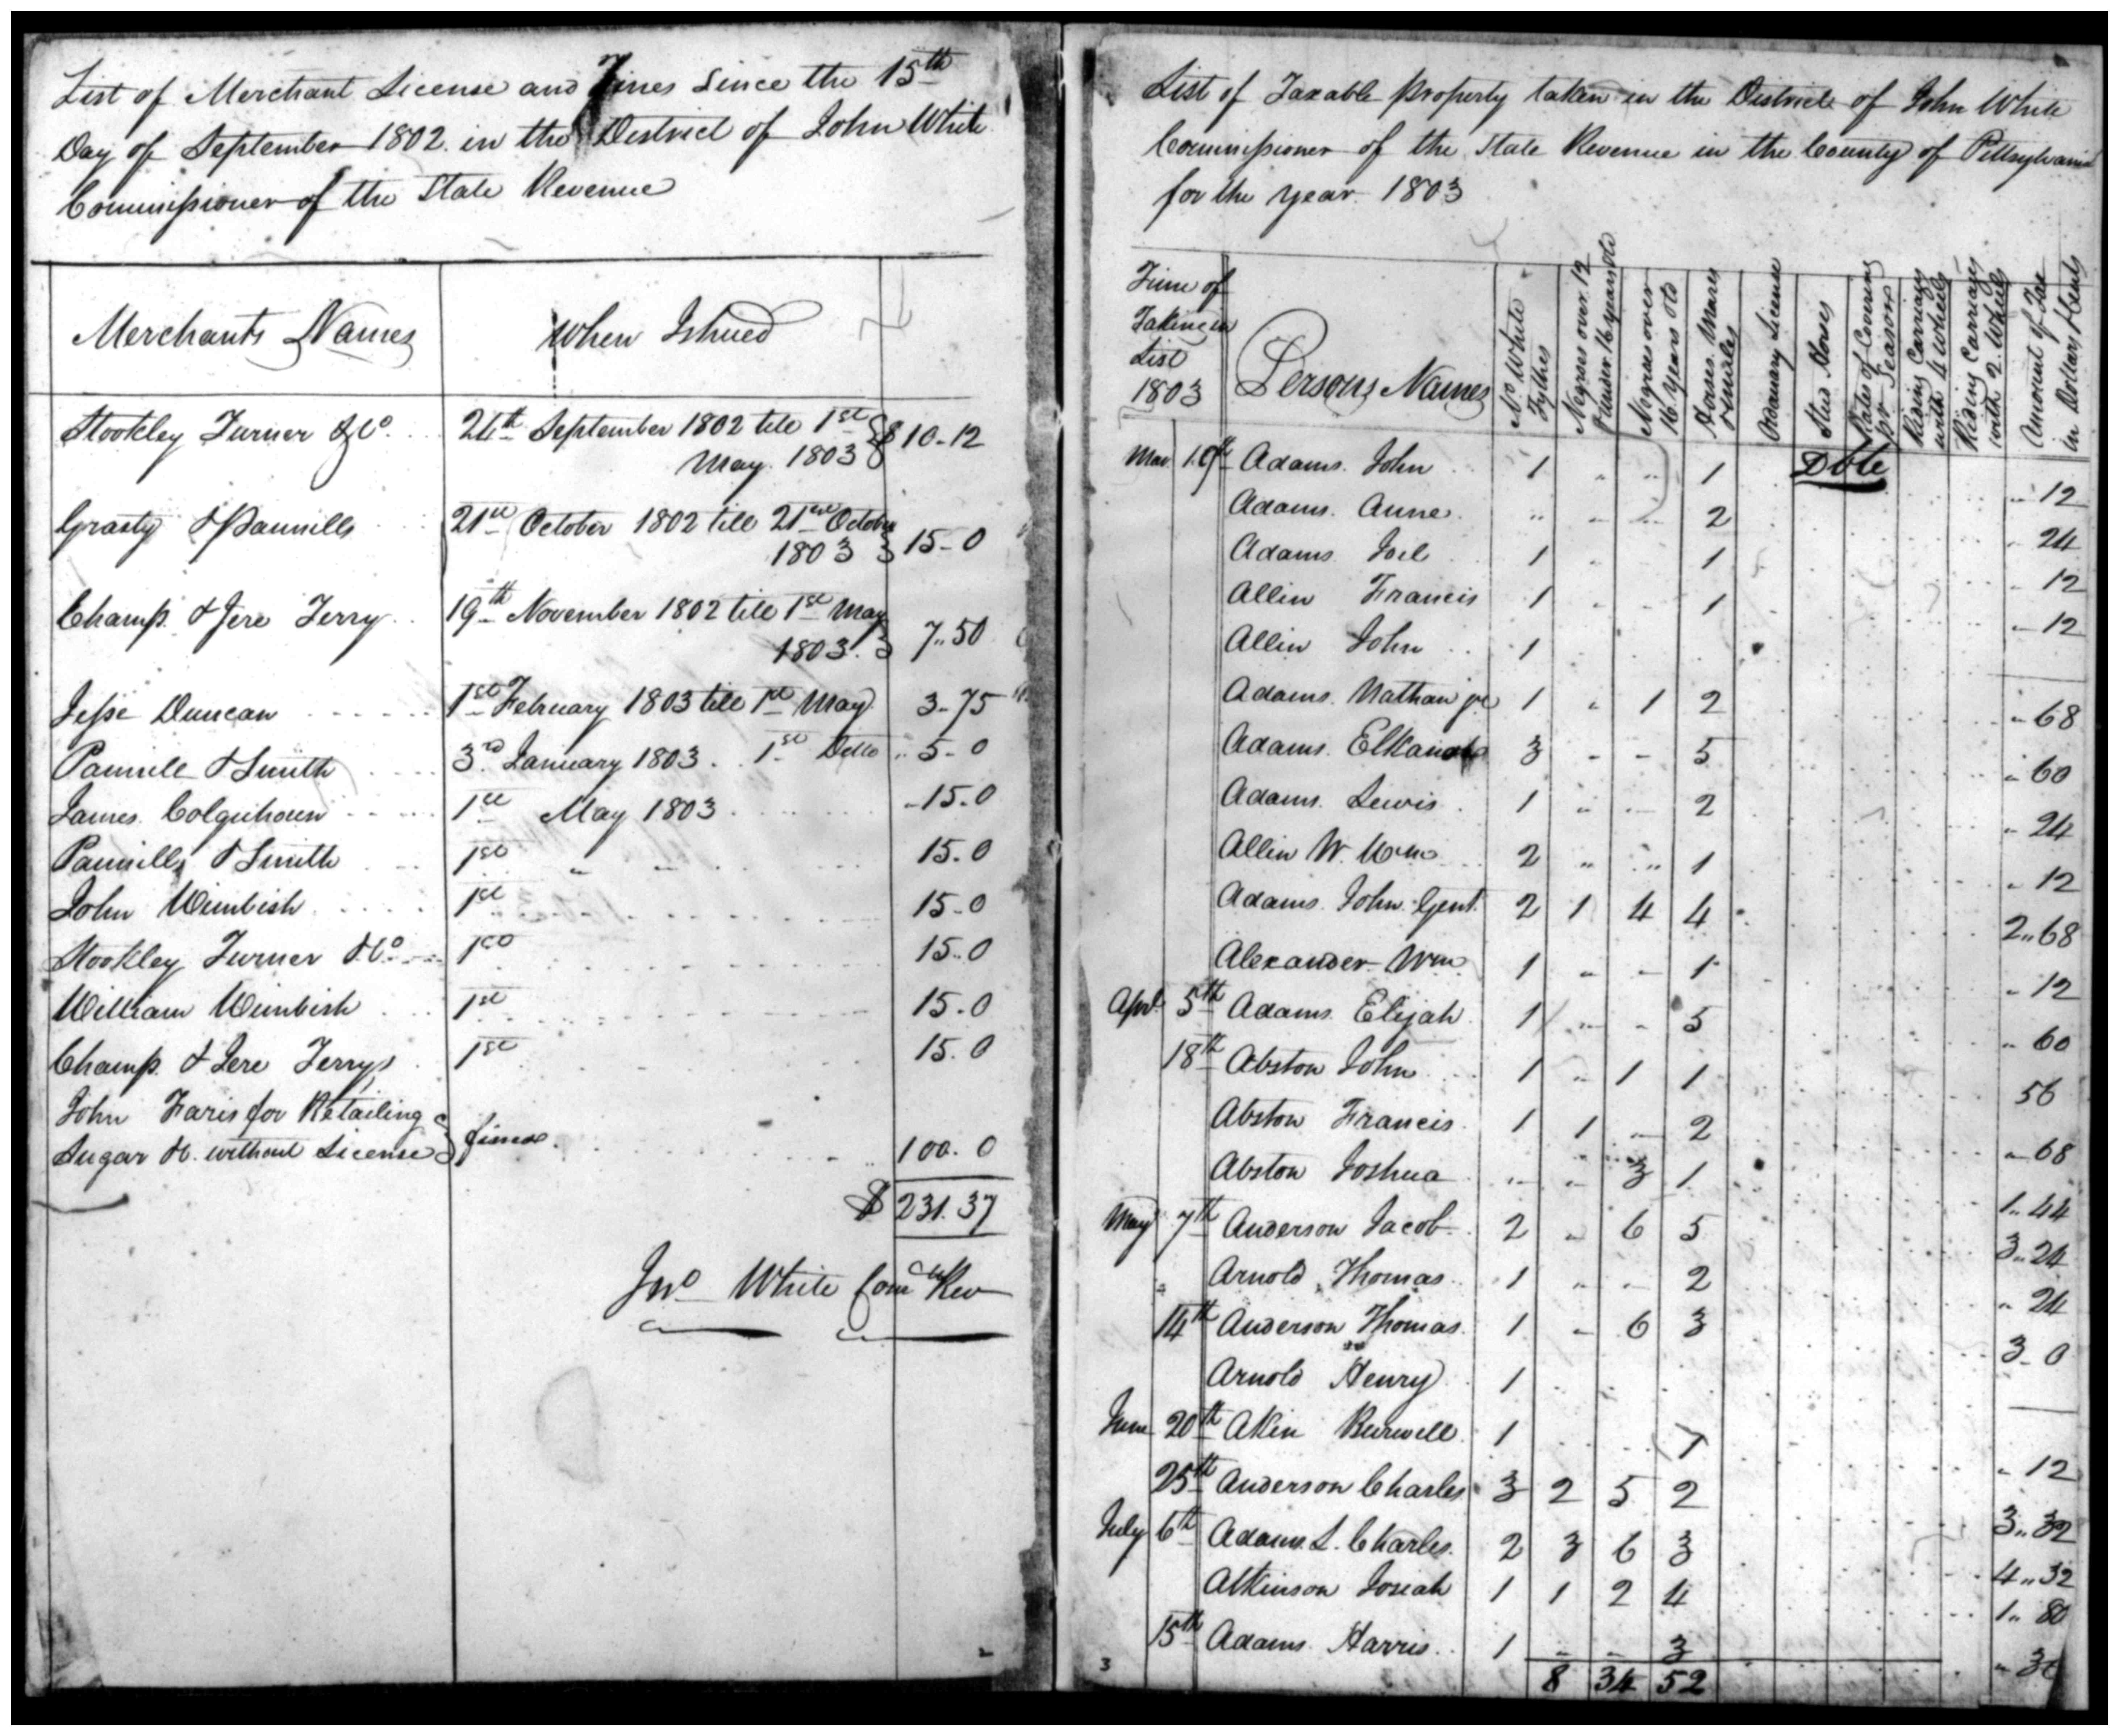 List of Merchant License and Fines Since the 15th
Day of September 1802 in the District of John White
Commissioner of the State Revenue
Merchants Names
When Ishued
Stookley Turner & Co. 24th September 1802 till 1st May 1803 $ 10-12
Grasty & Pannills 21st October 1802 till 21st October 1803 15-0
Champ. & Jere Terry 19th November 1802 till 1st May 1803. 7"50
Jesse Duncan 1st February 1803 till 1st May 3-75
Pannill & Smith 3rd January 1803. 1st Ditto 5-0
James Colquhoun 1st May 1803 15.0
Pannills & Smith 1st " " 15.0
John Wimbish 1st 15-0
Stookley Turner & Co. 1st 15.0
William Wimbish 1st 15.0
Champ. & Jere Terry 1st 15.0
John Faris for Retailing
Sugar &c. without License } fines. 100.0
$ 231.37
Jno White Comr Rev
2
List of Taxable property taken in the District of John White
Commissioner of the State Revenue in the County of Pittsylvania
for the year 1803
Time of Taking in List 1803
Persons Names
No. White Tythes
Negroes over 12 & under 16 years old
Negroes over 16 years old
Horses Mares & Mules
Ordinary License
Stud Horses
Rates of Covering pr Season
Riding Carriages with 4 Wheels
Riding Carriages with 2 Wheels
Amount of Tax in Dollars & Cents
Mar 19th Adams. John 1 " " 1 Dble " 12
Adams. Anne " " " 2 " 24
Adams Joel 1 " 1 " 12
Allin Francis 1 " " 1 " 12
Allin John 1
Adams. Nathan jr 1 " 1 2 " 68
Adams. Elkanah 3 - - 5 " 60
Adams. Lewis 1 " " 2 " 24
Allin W. Wm 2 " " 1 " 12
Adams. John Gent. 2 1 4 4 2"68
Alexander Wm 1 " " 1 " 12
Aprl 5th Adams Elijah 1 " " 5 " 60
18th Abston John 1 " 1 1 56
Abston Francis 1 1 " 2 " 68
Abston Joshua " " 3 1 1"44
May 7th Anderson Jacob 2 " 6 5 3"24
Arnold Thomas 1 " " 2 " 24
14th Anderson Thomas 1 " 6 3 3-0
Arnold Henry 1
June 20th Akin Burwell 1 1 " 12
25th Anderson Charles 3 2 5 2 3"32
July 6th Adams. L. Charles. 2 3 6 3 4"32
Atkinson Josiah 1 1 2 4 1"80
15th Adams Harris 1 " " 3 " 36
8 34 52
3